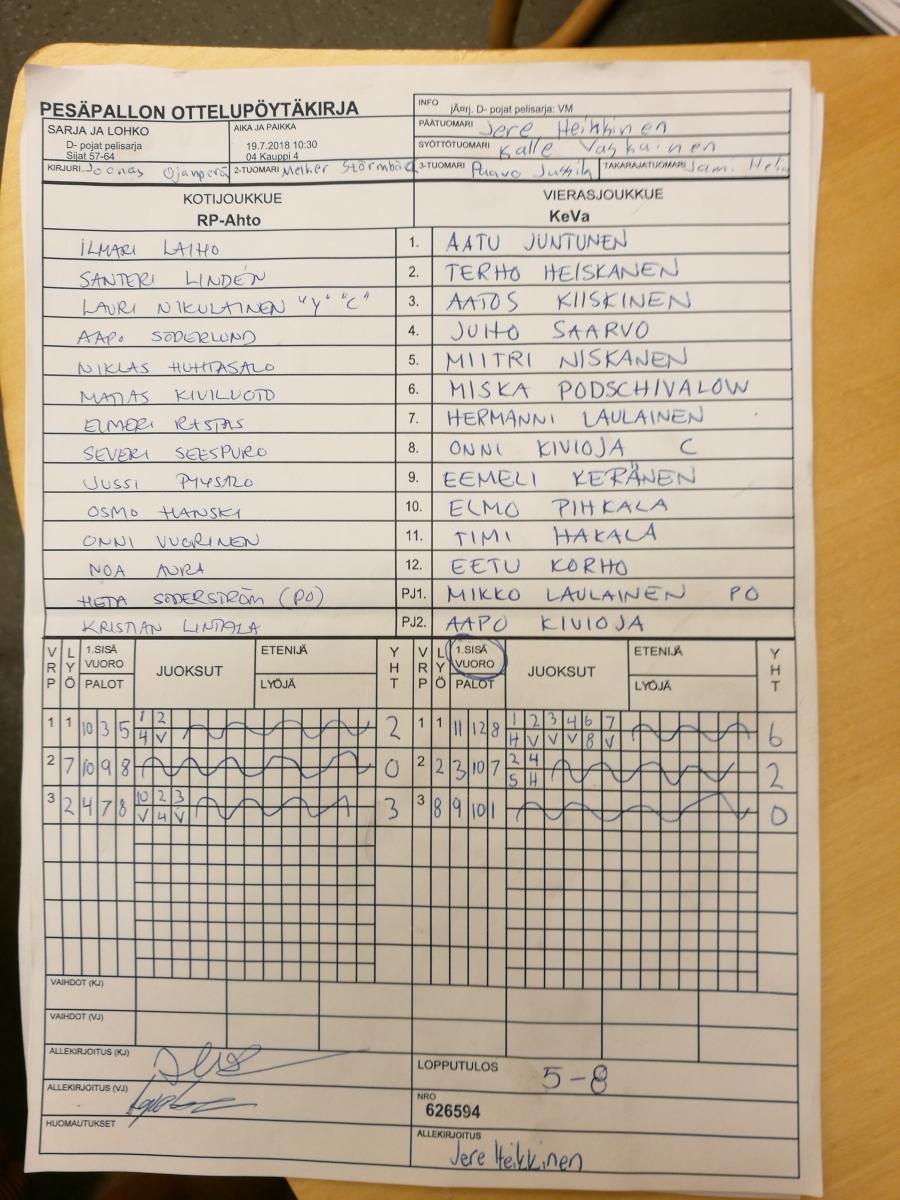 PESÄPALLON OTTELUPÖYTÄKIRJA
INFO jÄ¤rj. D- pojat pelisarja: VM
PÄÄTUOMARI Jere Heikkinen
SARJA JA LOHKO
D- pojat pelisarja
Sijat 57-64
AIKA JA PAIKKA
19.7.2018 10:30
04 Kauppi 4
SYÖTTÖTUOMARI Kalle Vaskainen
KIRJURI Joonas Ojanperä 2-TUOMARI Melker 3-TUOMARI Paavo TAKARAJATUOMARI Jami
KOTIJOUKKUE
RP-Ahto
VIERASJOUKKUE
KeVa
ILMARI LAIHO 1. AATU JUNTUNEN
SANTERI LINDÉN 2. TERHO HEISKANEN
LAURI NIKULAINEN "Y" "C" 3. AATOS KIISKINEN
AAPO SÖDERLUND 4. JUHO SAARVO
NIKLAS HUHTASALO 5. MIITRI NISKANEN
MATIAS KIVILUOTO 6. MISKA PODSCHIVALOW
ELMERI RASTAS 7. HERMANNI LAULAINEN
SEVERI SEESPURO 8. ONNI KIVIOJA C
JUSSI PYYSALO 9. EEMELI KERÄNEN
OSMO HANSKI 10. ELMO PIHKALA
ONNI VUORINEN 11. TIMI HAKALA
NOA AURA 12. EETU KORHO
HETA SÖDERSTRÖM (PO) PJ1. MIKKO LAULAINEN PO
KRISTIAN LINTALA PJ2. AAPO KIVIOJA
VRP LYÖ 1.SISÄ VUORO PALOT JUOKSUT ETENIJÄ LYÖJÄ YHT VRP LYÖ 1.SISÄ VUORO PALOT JUOKSUT ETENIJÄ LYÖJÄ YHT
1 1 10 3 5 1 2 2 1 1 11 12 8 1 2 3 4 6 7 6
4 V H V V V 8 V
2 7 10 9 8 0 2 2 3 10 7 2 4 2
5 H
3 2 4 7 8 10 2 3 3 3 8 9 10 1 0
V 4 V
VAIHDOT (KJ)
VAIHDOT (VJ)
ALLEKIRJOITUS (KJ)
LOPPUTULOS 5-8
ALLEKIRJOITUS (VJ)
NRO
626594
HUOMAUTUKSET
ALLEKIRJOITUS
Jere Heikkinen